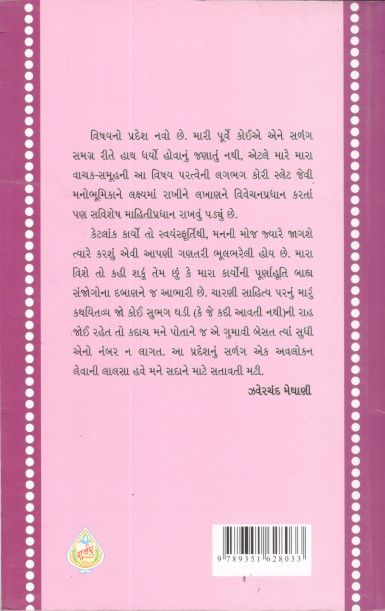 વિષયનો પ્રદેશ નવો છે. મારી પૂર્વે કોઈએ એને સળંગ
સમગ્ર રીતે હાથ ધર્યો હોવાનું જણાતું નથી, એટલે મારે મારા
વાચક-સમૂહની આ વિષય પરત્વેની લગભગ કોરી સ્લેટ જેવી
મનોભૂમિકાને લક્ષ્યમાં રાખીને લખાણને વિવેચનપ્રધાન કરતાં
પણ સવિશેષ માહિતીપ્રધાન રાખવું પડ્યું છે.
કેટલાંક કાર્યો તો સ્વયંસ્ફૂર્તિથી, મનની મોજ જ્યારે જાગશે
ત્યારે કરશું એવી આપણી ગણતરી ભૂલભરેલી હોય છે. મારા
વિશે તો કહી શકું તેમ છું કે મારા કાર્યોની પૂર્ણાહૂતિ બાહ્ય
સંજોગોના દબાણને જ આભારી છે. ચારણી સાહિત્ય પરનું મારું
કથયિતવ્ય જો કોઈ સુભગ ઘડી (કે જે કદી આવતી નથી)ની રાહ
જોઈ રહેત તો કદાચ મને પોતાને જ એ ગુમાવી બેસત ત્યાં સુધી
એનો નંબર ન લાગત. આ પ્રદેશનું સળંગ એક અવલોકન
લેવાની લાલસા હવે મને સદાને માટે સતાવતી મટી.
ઝવેરચંદ મેઘાણી
9 789351 628033
ગૂર્જર